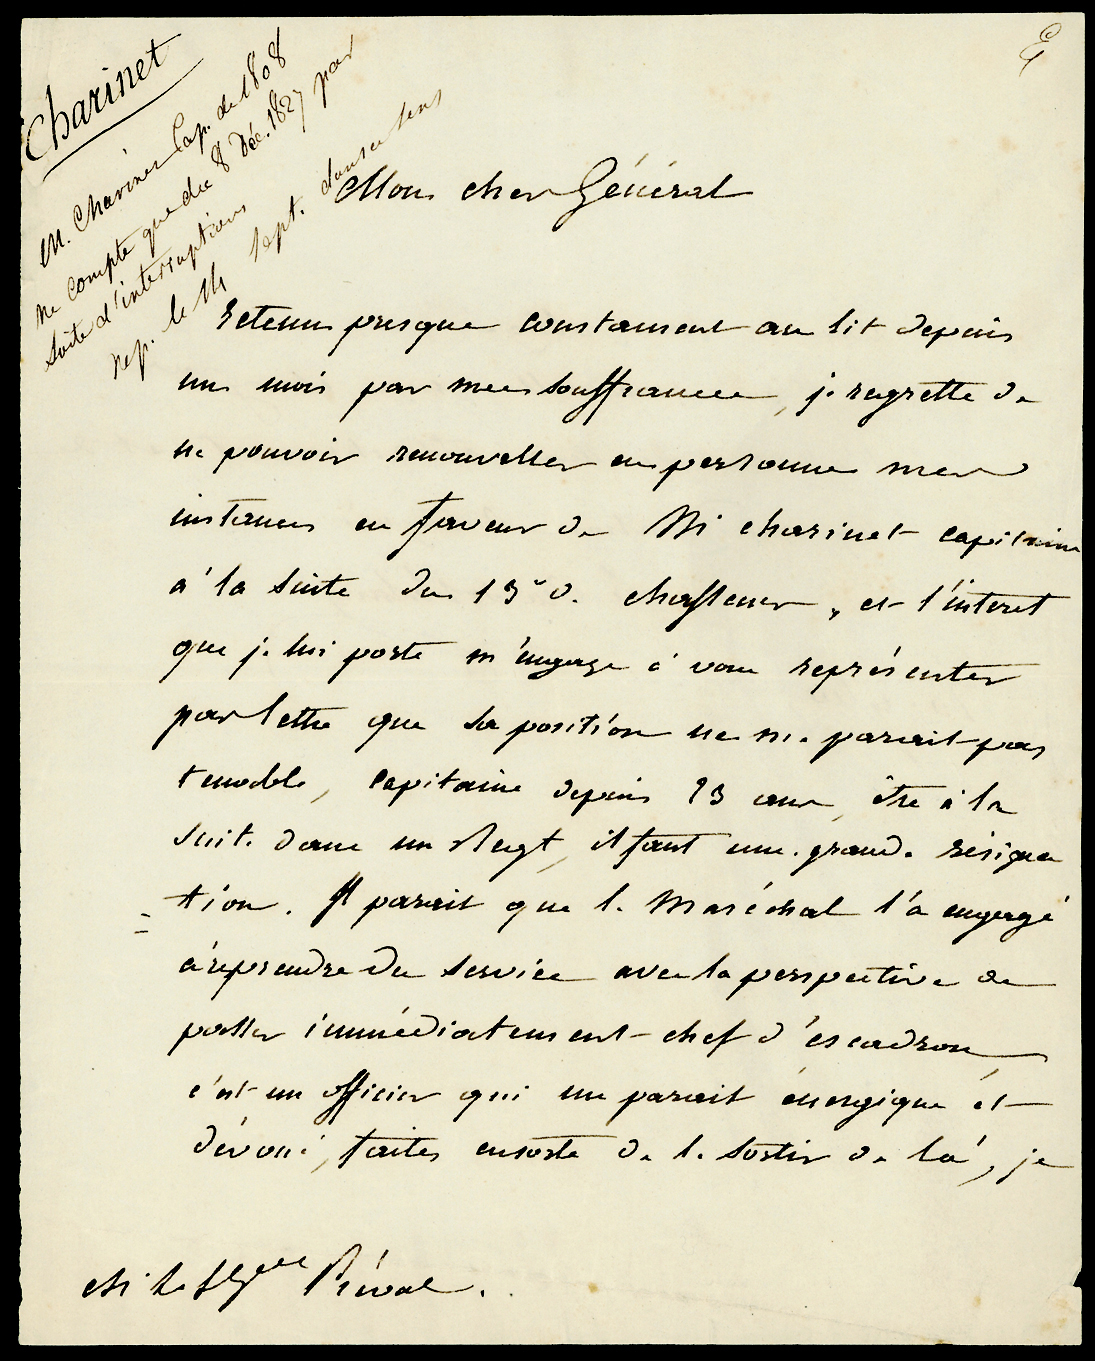 Charinet
M. Charinet Cap. de 1808
ne compte que du 8 Déc. 1827 par
suite d'interruptions
rep. le 14 Sept. dans ce sens
Mon cher Général
retenu presque constament au lit depuis
un mois par mes souffrances, je regrette de
ne pouvoir renouveller en personne mes
instances en faveur de Mr charinet capitaine
à la suite du 13e d. chasseurs, et l'interet
que je lui porte m'engage à vous représenter
par lettre que sa position ne me parait pas
tenable, capitaine depuis 23 ans, être à la
suite dans un Regt, il faut une grande résigna
tion. Il parait que le Maréchal l'a engagé
à reprendre du service avec la perspective de
passer immédiatement chef d'escadron
c'est un officier qui me parait énergique et
dévoué, faites ensorte de le sortir de là, je
Mr le Preval.